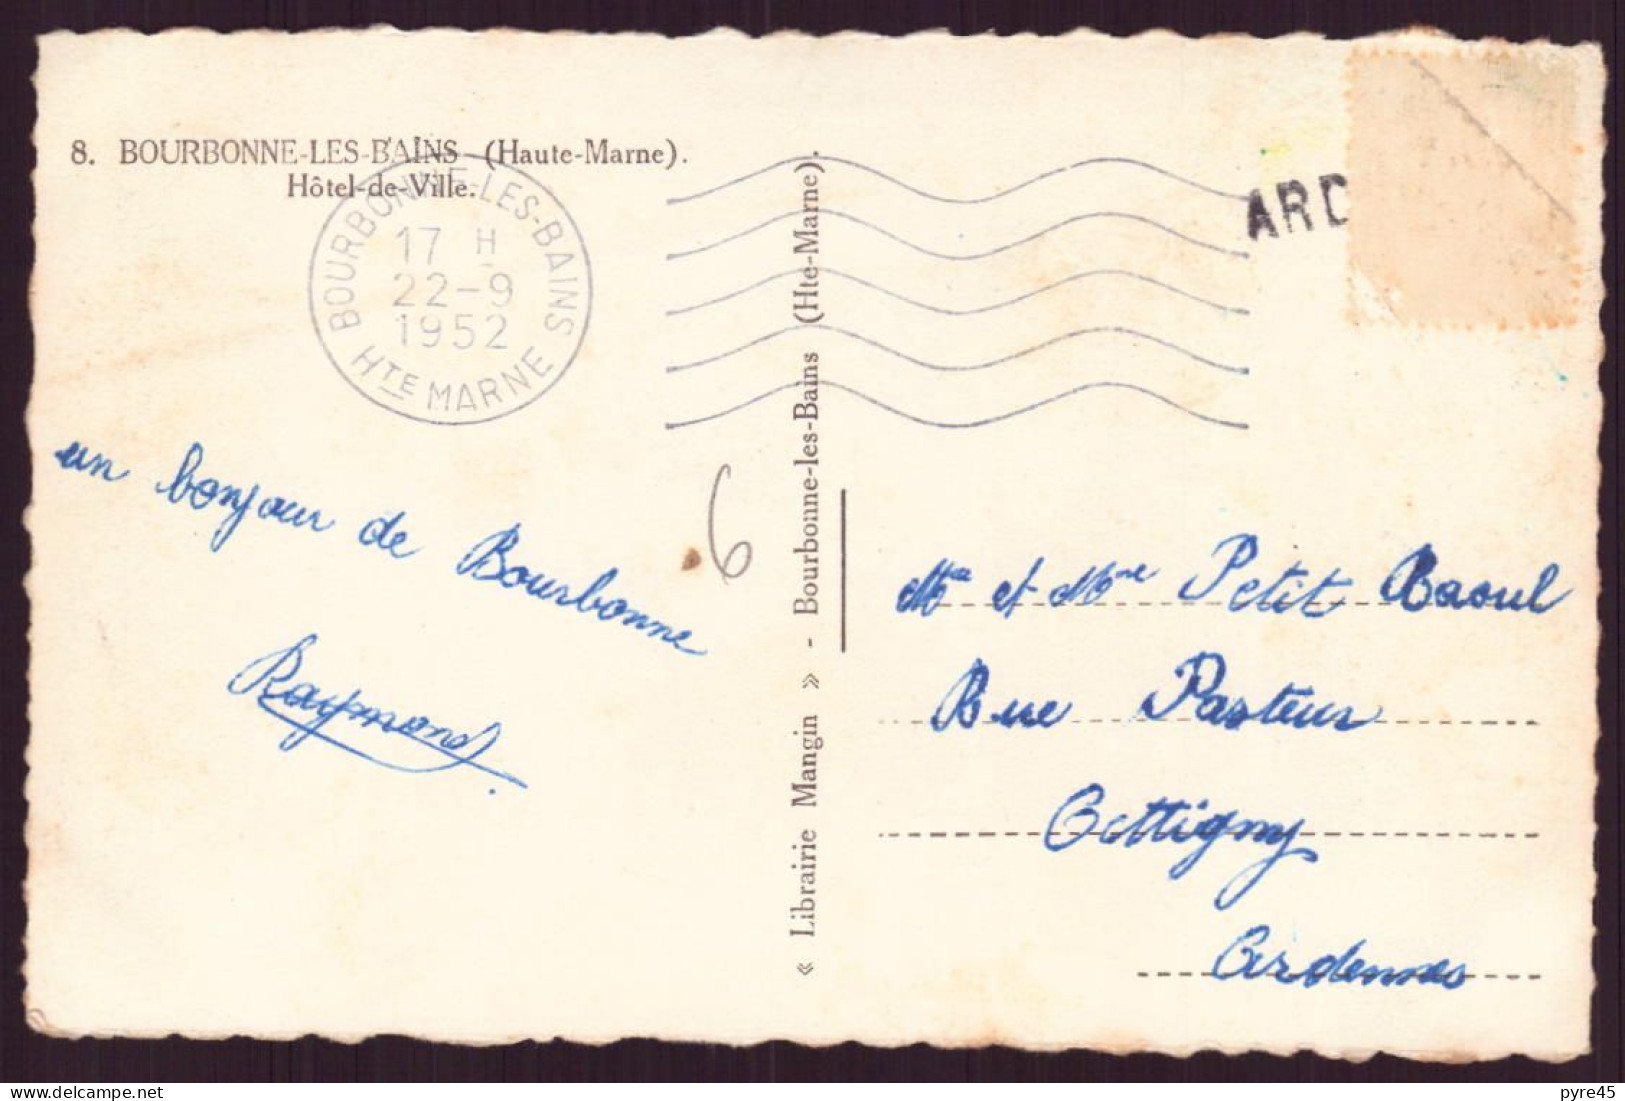 8. BOURBONNE-LES-BAINS (Haute-Marne).
Hôtel-de-Ville.
BOURBONNE-LES-BAINS
17 H
22-9
1952
HTE MARNE
ARD
un bonjour de Bourbonne
Raymond
6
« Librairie Mangin » - Bourbonne-les-Bains (Hte-Marne).
Mr et Mme Petit Raoul
Rue Pasteur
Attigny
Ardennes
pyre45